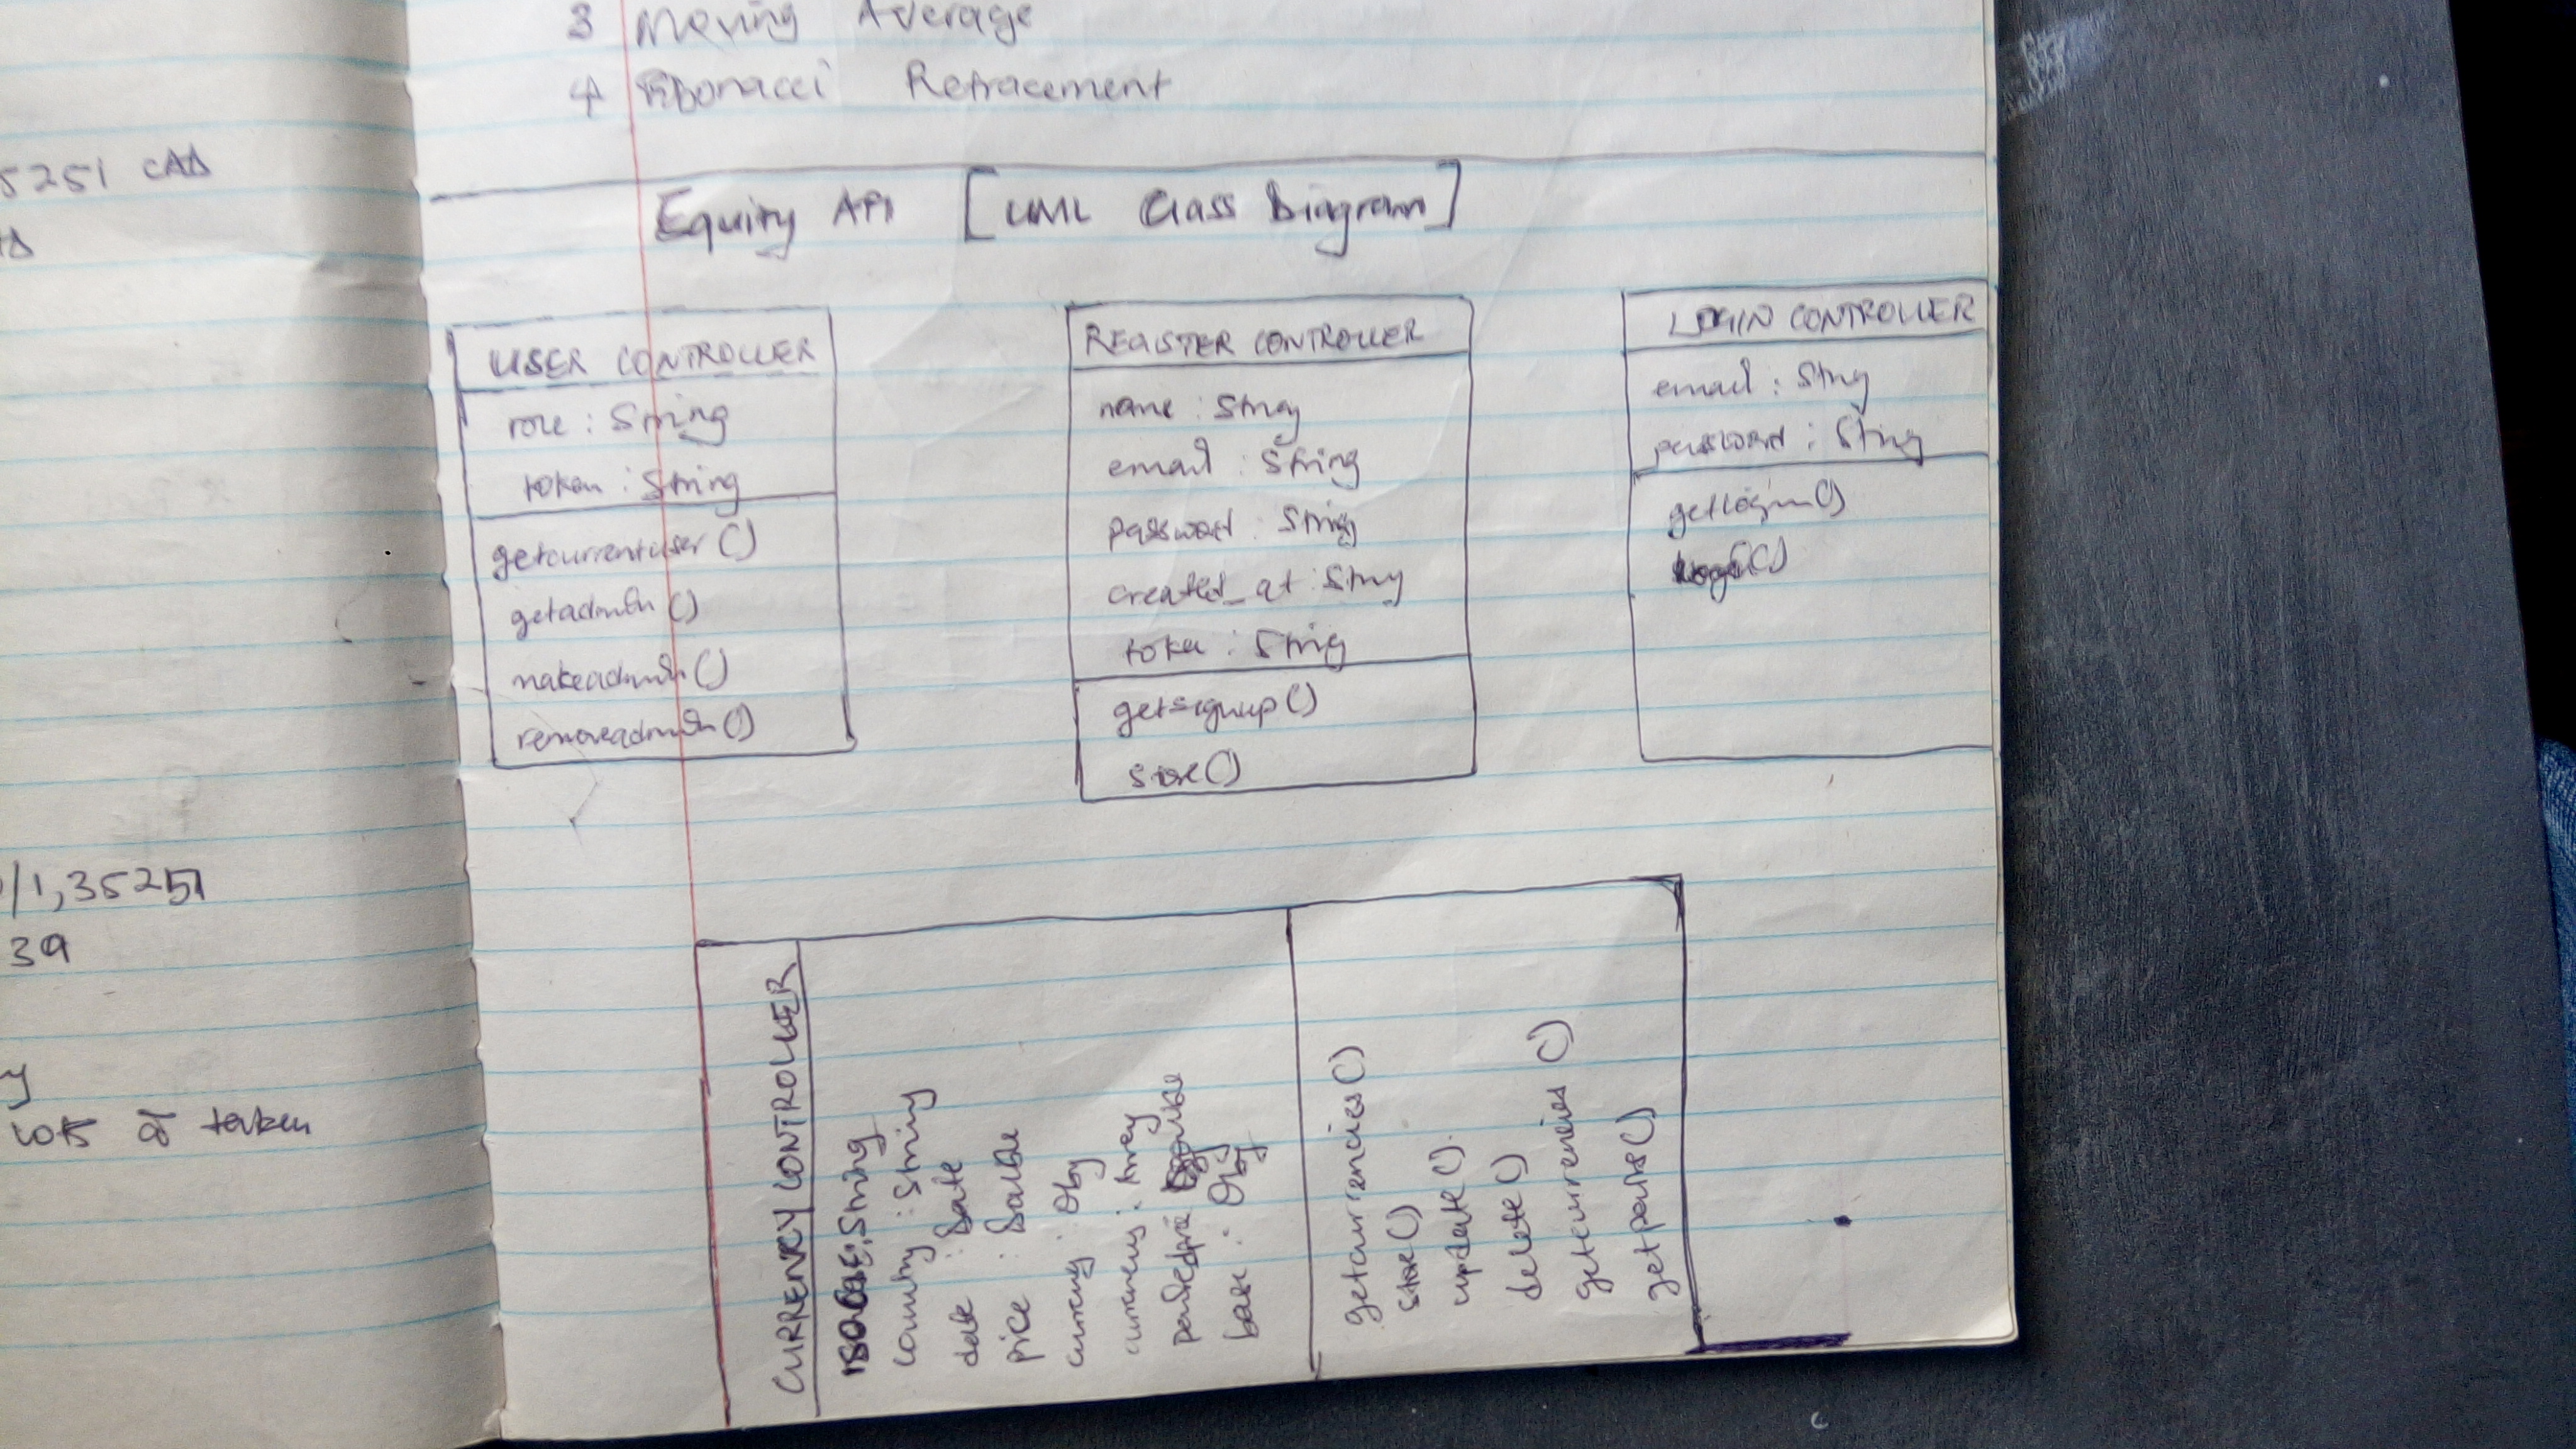 5251 CAD
/1,35251
39
y
lots of taken
3 Moving Average
4 Fibonacci Retracement
Equity API [UML Class Diagram]
USER CONTROLLER
role : String
token : String
getcurrentuser()
getadmin()
makeadmin()
removeadmin()
REGISTER CONTROLLER
name : String
email : String
password : String
created_at : String
token : String
getsignup()
store()
LOGIN CONTROLLER
email : String
password : String
getlogin()
CURRENCY CONTROLLER
: String
country : String
date : Date
price : Double
currency : Obj
currency : Array
base : Obj
getcurrencies()
store()
update()
delete()
getcurrencies()
getpairs()